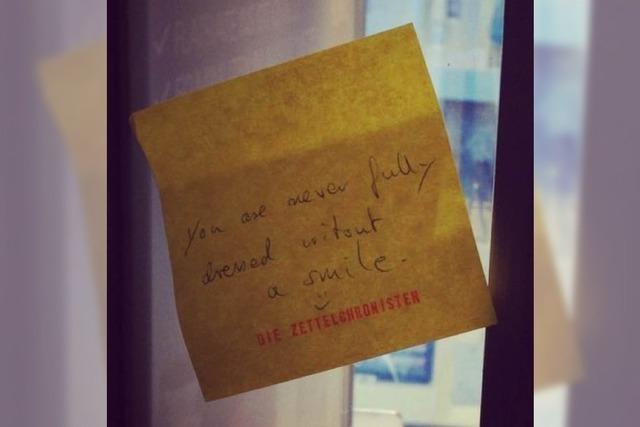 You are never fully
dressed witout
a smile.
DIE ZETTELCHRONISTEN